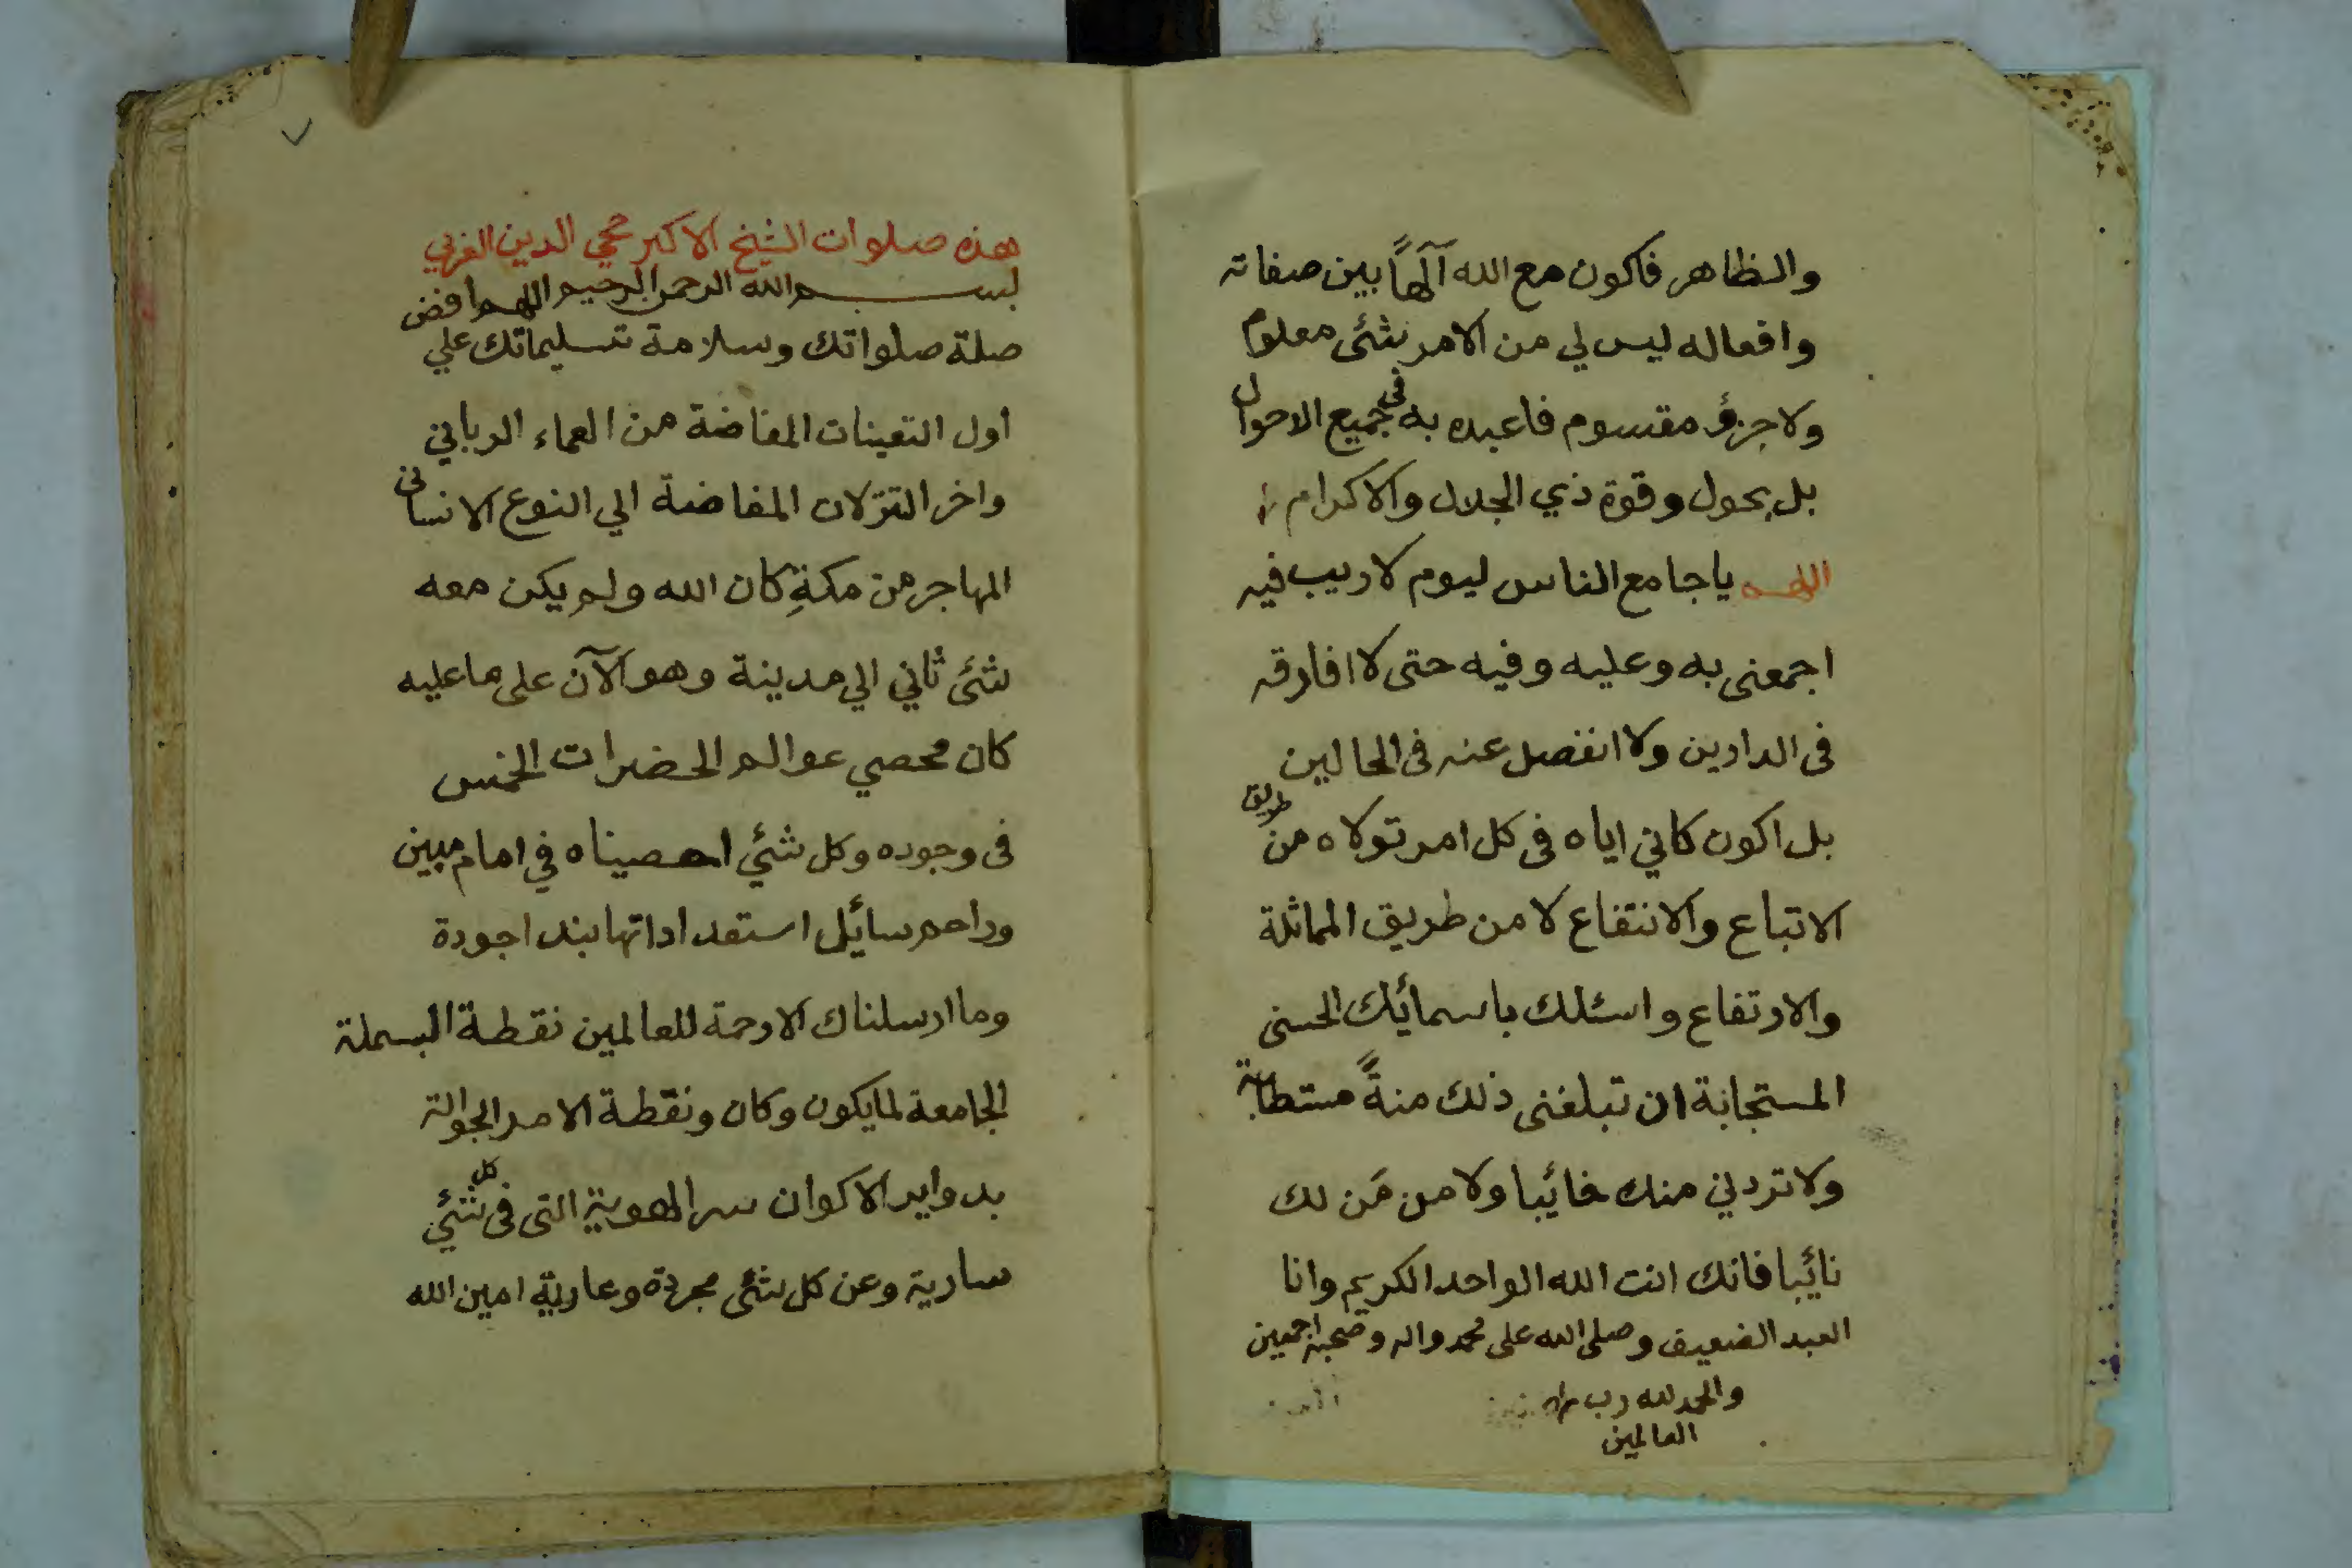 والظاهر فاكون مع الله آلهاً بين صفاته
وافعاله ليس لي من الامر شئ معلوم
ولا جزؤ مقسوم فاعبده به في جميع الاحوال
بل بحول وقوة ذي الجلال والاكرام
اللهم ياجامع الناس ليوم لا ريب فيه
اجمعنى به وعليه وفيه حتى لا افارقه
فى الدارين ولا انفصل عنه فى الحالين
بل اكون كاني اياه فى كل امر تولاه من طريق
الاتباع والانتفاع لا من طريق المماثلة
والارتفاع واسئلك باسمائك الحسنى
المستجابة ان تبلغنى ذلك منةً مستطابة
ولا تردني منك خائبا ولا من مَن لك
نائبا فانك انت الله الواحد الكريم وانا
العبد الضعيف وصلى الله على محمد واله وصحبه اجمعين
والحمد لله رب
العالمين
هذه صلوات الشيخ الاكبر محي الدين العربي
بسم الله الرحمن الرحيم اللهم افض
صلة صلواتك وسلامة تسليماتك علي
اول التعينات المفاضة من العماء الرباني
واخر التنزلات المفاضة الي النوع الانساني
المهاجر من مكةِ كان الله ولم يكن معه
شئ ثاني الي مدينة وهو الآن على ما عليه
كان محصي عوالم الحضرات الخمس
فى وجوده وكل شئي احصيناه في امام مبين
وراحم سائل استعداداتها بندا جودة
وما ارسلناك الا رحمة للعالمين نقطة البسملة
الجامعة لما يكون وكان ونقطة الامر الجوالة
بدواير الاكوان سر الهوية التى فى كل شئي
سارية وعن كل شئ مجردة وعارية امين الله